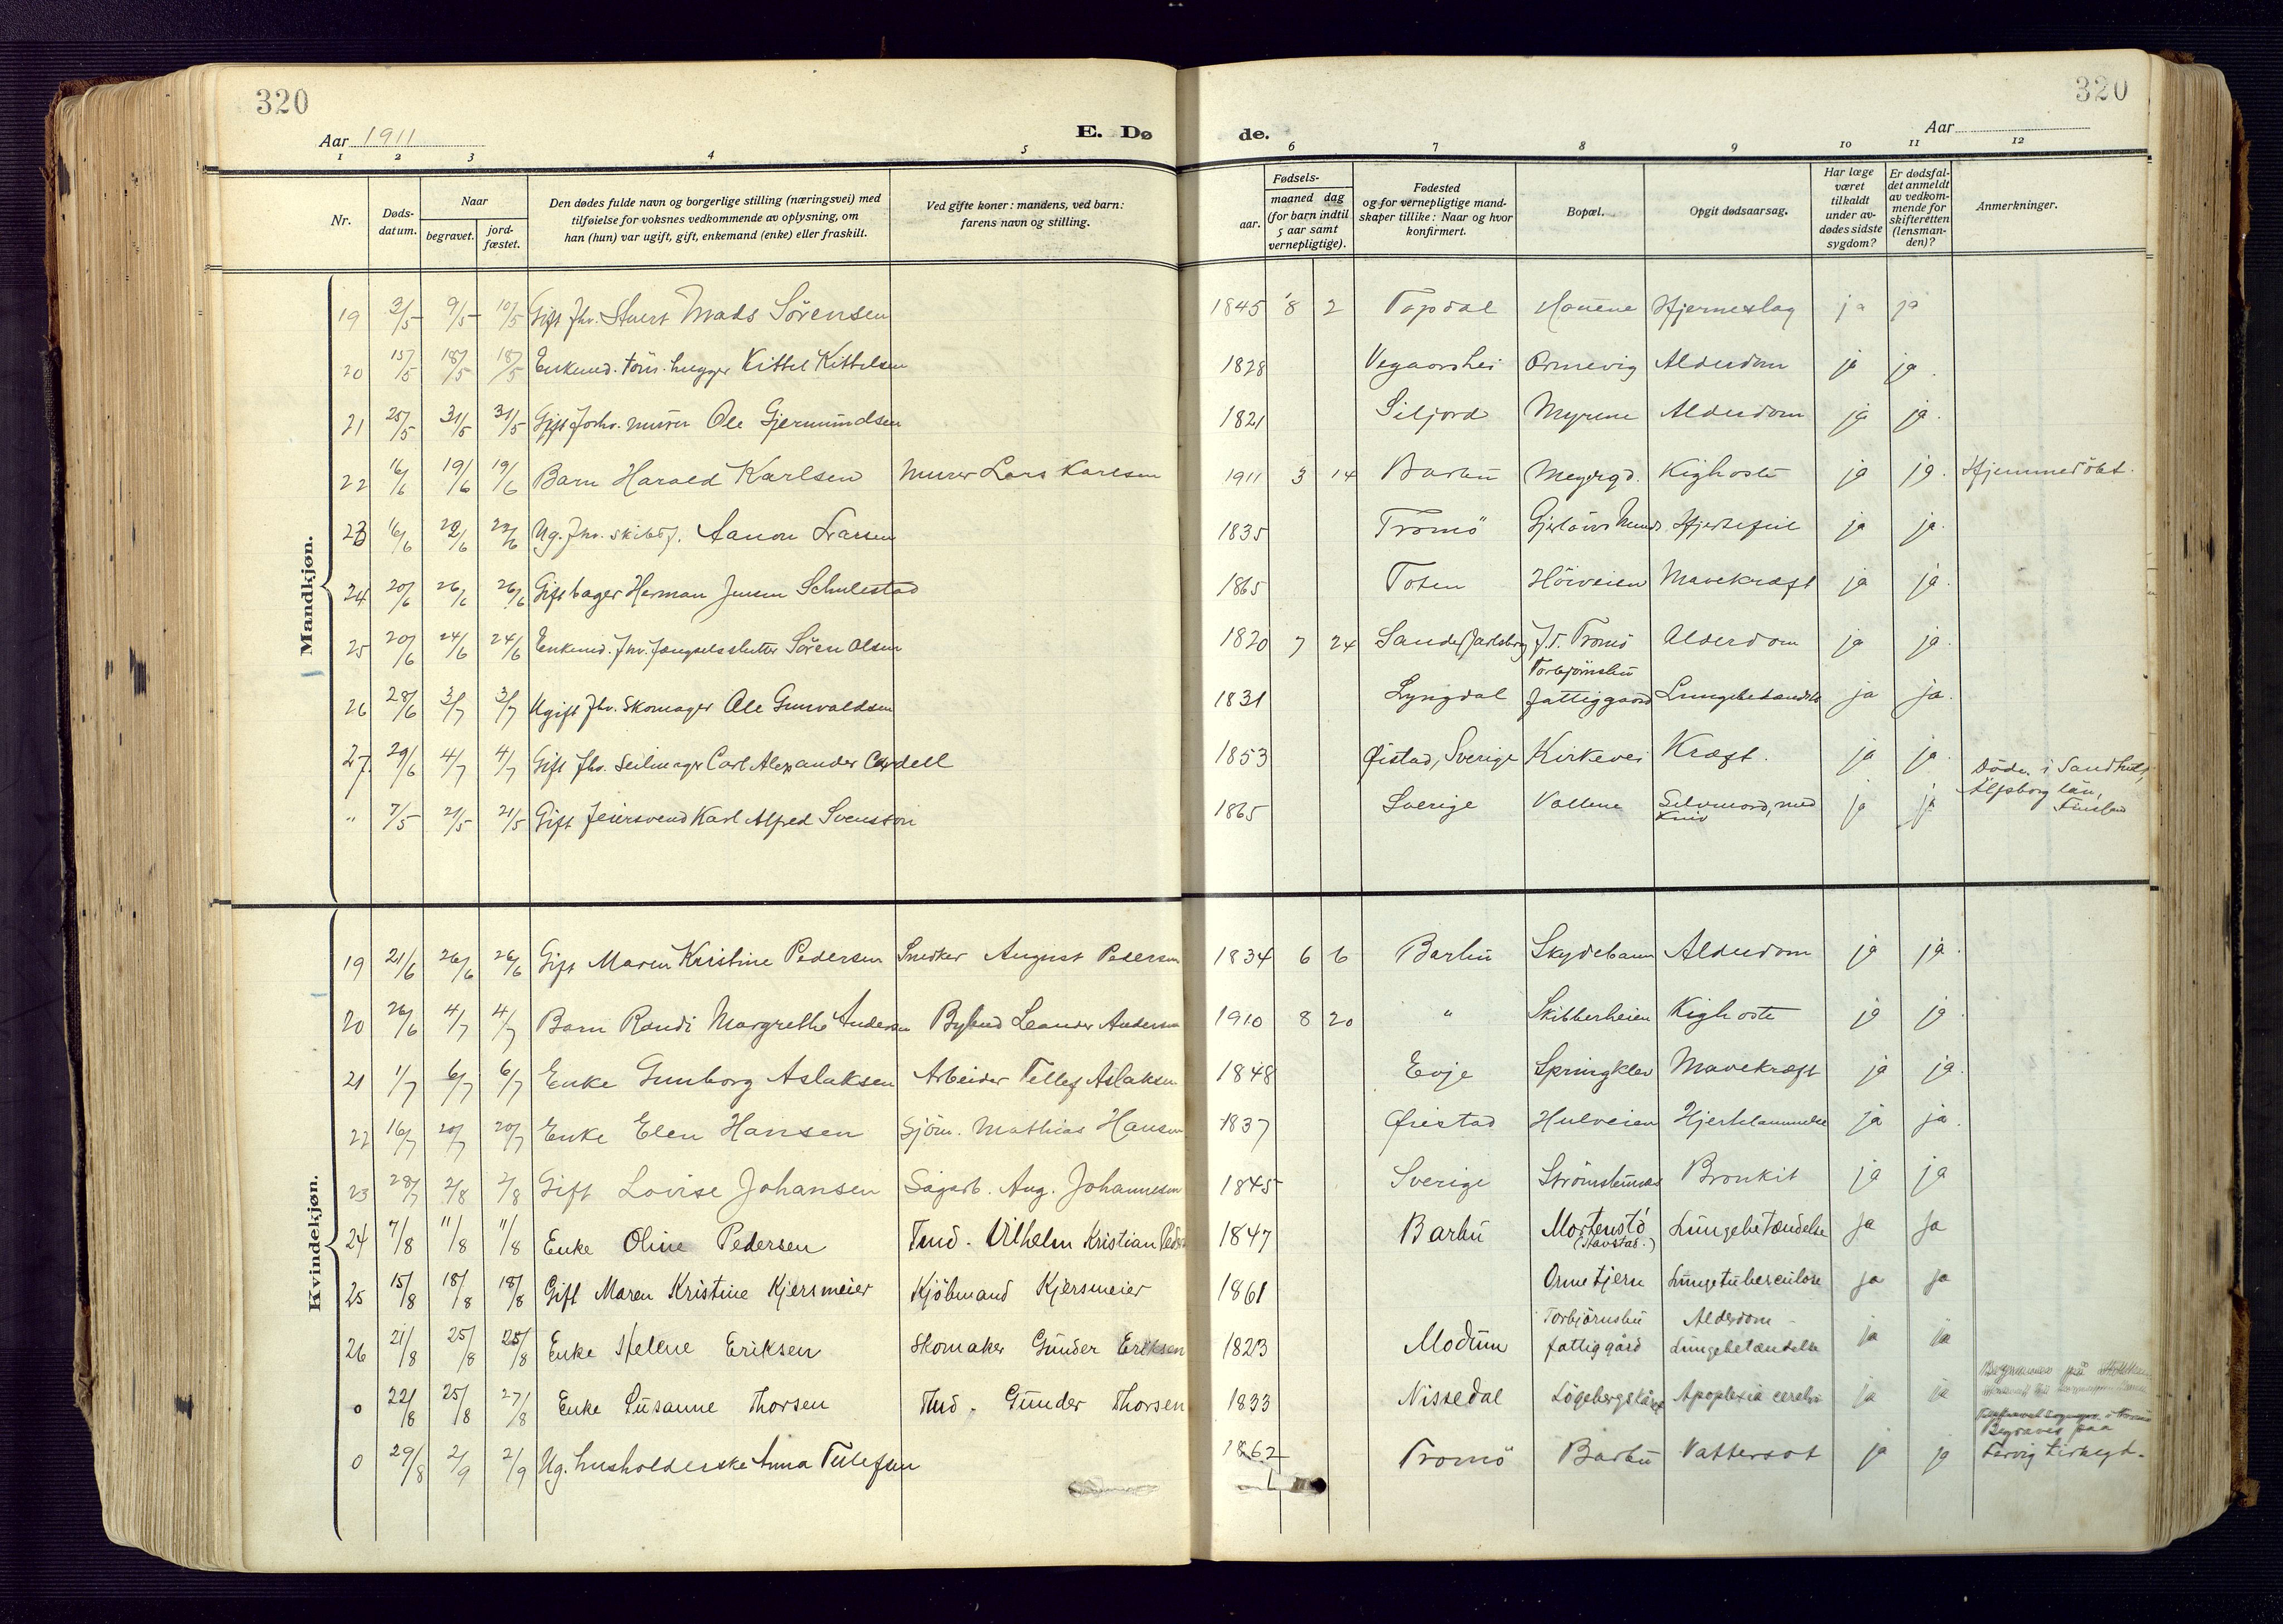 320
320
Aar 1911
E. Dø
de.
Aar
1 2 3 4 5 6 7 8 9 10 11 12
Nr.
Døds-
datum.
Naar
begravet.
jord-
fæstet.
Den dødes fulde navn og borgerlige stilling (næringsvei) med
tilføielse for voksnes vedkommende av oplysning, om
han (hun) var ugift, gift, enkemand (enke) eller fraskilt.
Ved gifte koner: mandens, ved barn:
farens navn og stilling.
Fødsels-
aar.
maaned dag
(for barn indtil
5 aar samt
vernepligtige).
Fødested
og for vernepligtige mand-
skaper tillike: Naar og hvor
konfirmert.
Bopæl.
Opgit dødsaarsag.
Har læge
været
tilkaldt
under av-
dødes sidste
sygdom?
Er dødsfal-
det anmeldt
av vedkom-
mende for
skifteretten
(lensman-
den)?
Anmerkninger.
Mandkjøn.
19 3/5 9/5 10/5 Gift fhv. Stuert Mads Sörensen 1845 8 2 Topdal Hjerneslag ja ja
20 15/5 18/5 18/5 Enkemd. töm.hugger Kittel Kittelsen 1828 Vegaorshei Ormevig Alderdom ja ja.
21 25/5 31/5 31/5 Gift forhv. murer Ole Gjermundsen 1821 Siljord Myrene Alderdom ja ja.
22 16/6 19/6 19/6 Barn Harald Karlsen Murer Lars Karlsen 1911 3 14 Barbu Meyergd. Kighoste ja ja. Hjemmedöbt.
23 16/6 20/6 22/6 Ug. fhv. skibsf. Aanon Larsen 1835 Tromö Hjertefeil ja ja.
24 20/6 26/6 26/6 Gift bager Herman Jensen Schulestad 1865 Toten Höiveien Mavekræft ja ja.
25 20/6 24/6 24/6 Enkemd. fhv. fængselsslutter Sören Olsen 1820 7 24 Sande, Jarlsberg f.T. Tromö Alderdom ja ja.
26 28/6 3/7 3/7 Ugift fhv. Skomager Ole Gunvaldsen 1831 Lyngdal Torbjörnsbu fattiggaard Lungebetændelse ja ja.
27. 29/6 4/7 4/7 Gift fhv. Seilmager Carl Alexander Cordell 1853 Øistad, Sverige Kirkevei Kræft. ja ja.
" 7/5 21/5 21/5 Gift feiersvend Karl Alfred Svensson 1865 Sverige Vollene Selvmord, med kniv ja ja Döde i Sandhult, Älfsborg län,
Kvindekjøn.
19 21/6 26/6 26/6 Gift Maren Kristine Pedersen Snedker August Pedersen 1834 6 6 Barbu Skydebanen Alderdom ja ja.
20 26/6 4/7 4/7 Barn Randi Margrethe Andersen Bybud Leander Andersen 1910 8 20 " Skibberheien Kighoste ja ja.
21 1/7 6/7 6/7 Enke Gunborg Aslaksen Arbeider Tellef Aslaksen 1848 Evje Springklev Mavekræft ja ja.
22 16/7 20/7 20/7 Enke Elen Hansen Sjöm. Mathias Hansen 1837 Øiestad Hulveien Hjertelammelse ja ja.
23 28/7 2/8 2/8 Gift Lovise Johansen Sagarb. Aug. Johannesen 1845 Sverige Strömsbunes Bronkit ja ja
24 7/8 11/8 11/8 Enke Oline Pedersen Tmd. Vilhelm Kristian Peders 1847 Barbu Mortenstö (Havstad.) Lungebetændelse ja ja
25 15/8 18/8 18/8 Gift Maren Kristine Kjersmeier Kjöbmand Kjersmeier 1861 Ormetjern Lungetuberculose ja ja
26 21/8 25/8 25/8 Enke Hellene Eriksen Skomaker Gunder Eriksen 1823 Modum Torbjörnsbu fattiggård Alderdom - Lungebetændelse ja ja
0 22/8 25/8 27/8 Enke Susanne Thorsen Tmd. Gunder Thorsen 1833 Nissedal Apoplexia cerebri ja ja
0 29/8 2/9 2/9 Ug. husholderske Anna Tellefsen 1862 Tromö Barbu Vattersot ja ja Begraves paa Færvig kirkegd.